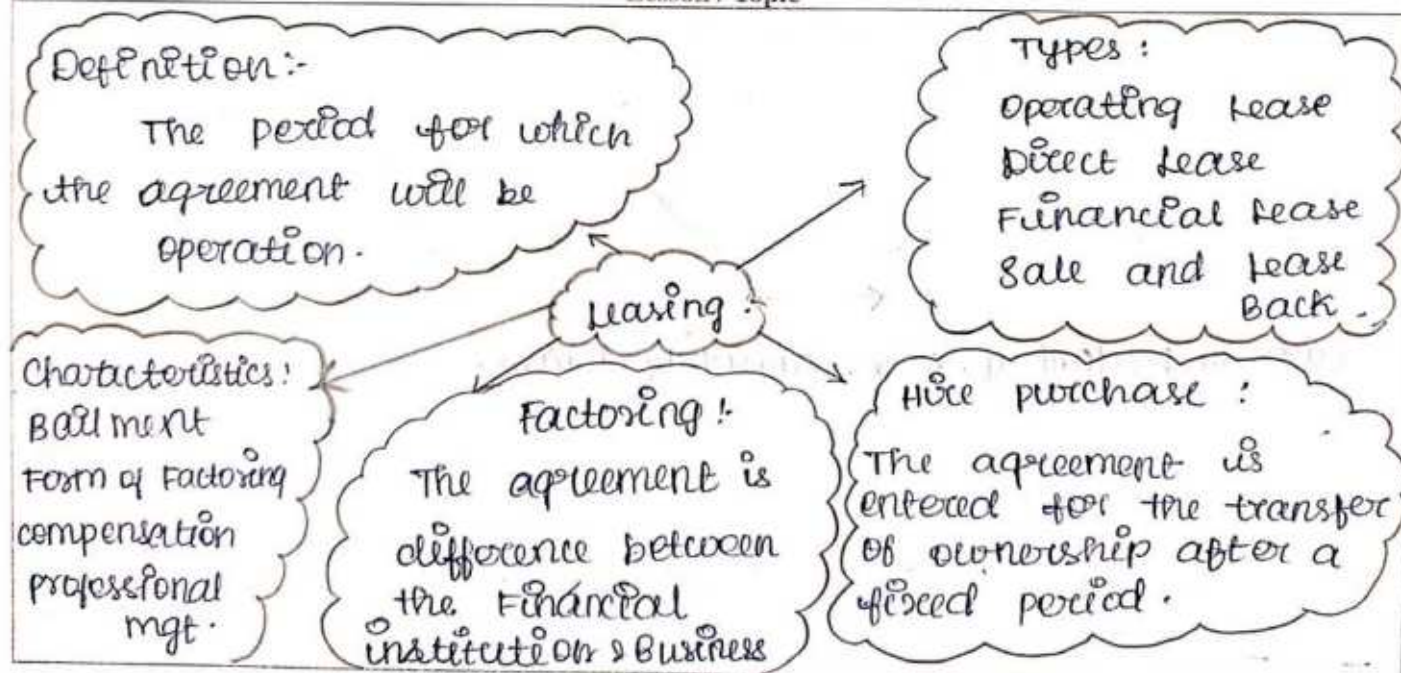 Definition:-
The period for which
the agreement will be
operation.
Types:
Operating Lease
Direct Lease
Financial Lease
Sale and Lease
Back.
Leasing.
Characteristics:
Bailment
Form of Factoring
compensation
professional
mgt.
Factoring:-
The agreement is
difference between
the Financial
institution & Business
Hire purchase:
The agreement is
entered for the transfer
of ownership after a
fixed period.